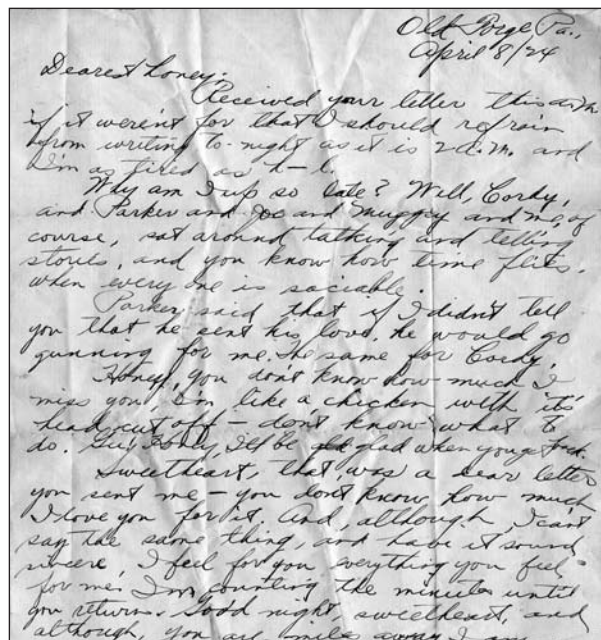 Old Forge, Pa.,
April 8/24
Dearest honey:
Received your letter this a.m.
if it weren't for that I should refrain
from writing to-night as it is 2 a.m. and
I'm as tired as h-l.
Why am I up so late? Well, Cordy,
and Parker and Jos and Muggsy and me, of
course, sat around talking and telling
stories, and you know how time flits,
when every one is sociable.
Parker said that if I didn't tell
you that he sent his love, he would go
gunning for me. The same for Cordy.
Honey, you don't know how much I
miss you, I'm like a chicken with it's
head cut off – don't know what to
do. Gee, honey, I'll be glad when you get back.
Sweetheart, that was a dear letter
you sent me – you don't know how much
I love you for it. And, although I can't
say the same thing, and have it sound
sincere, I feel for you everything you feel
for me. I'm counting the minutes until
you return. Good night, sweetheart, and
although, you are miles away, I am